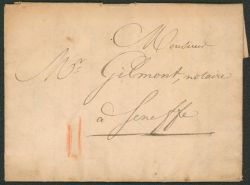 Monsieur
Mr. Gilmont, notaire
à Seneffe